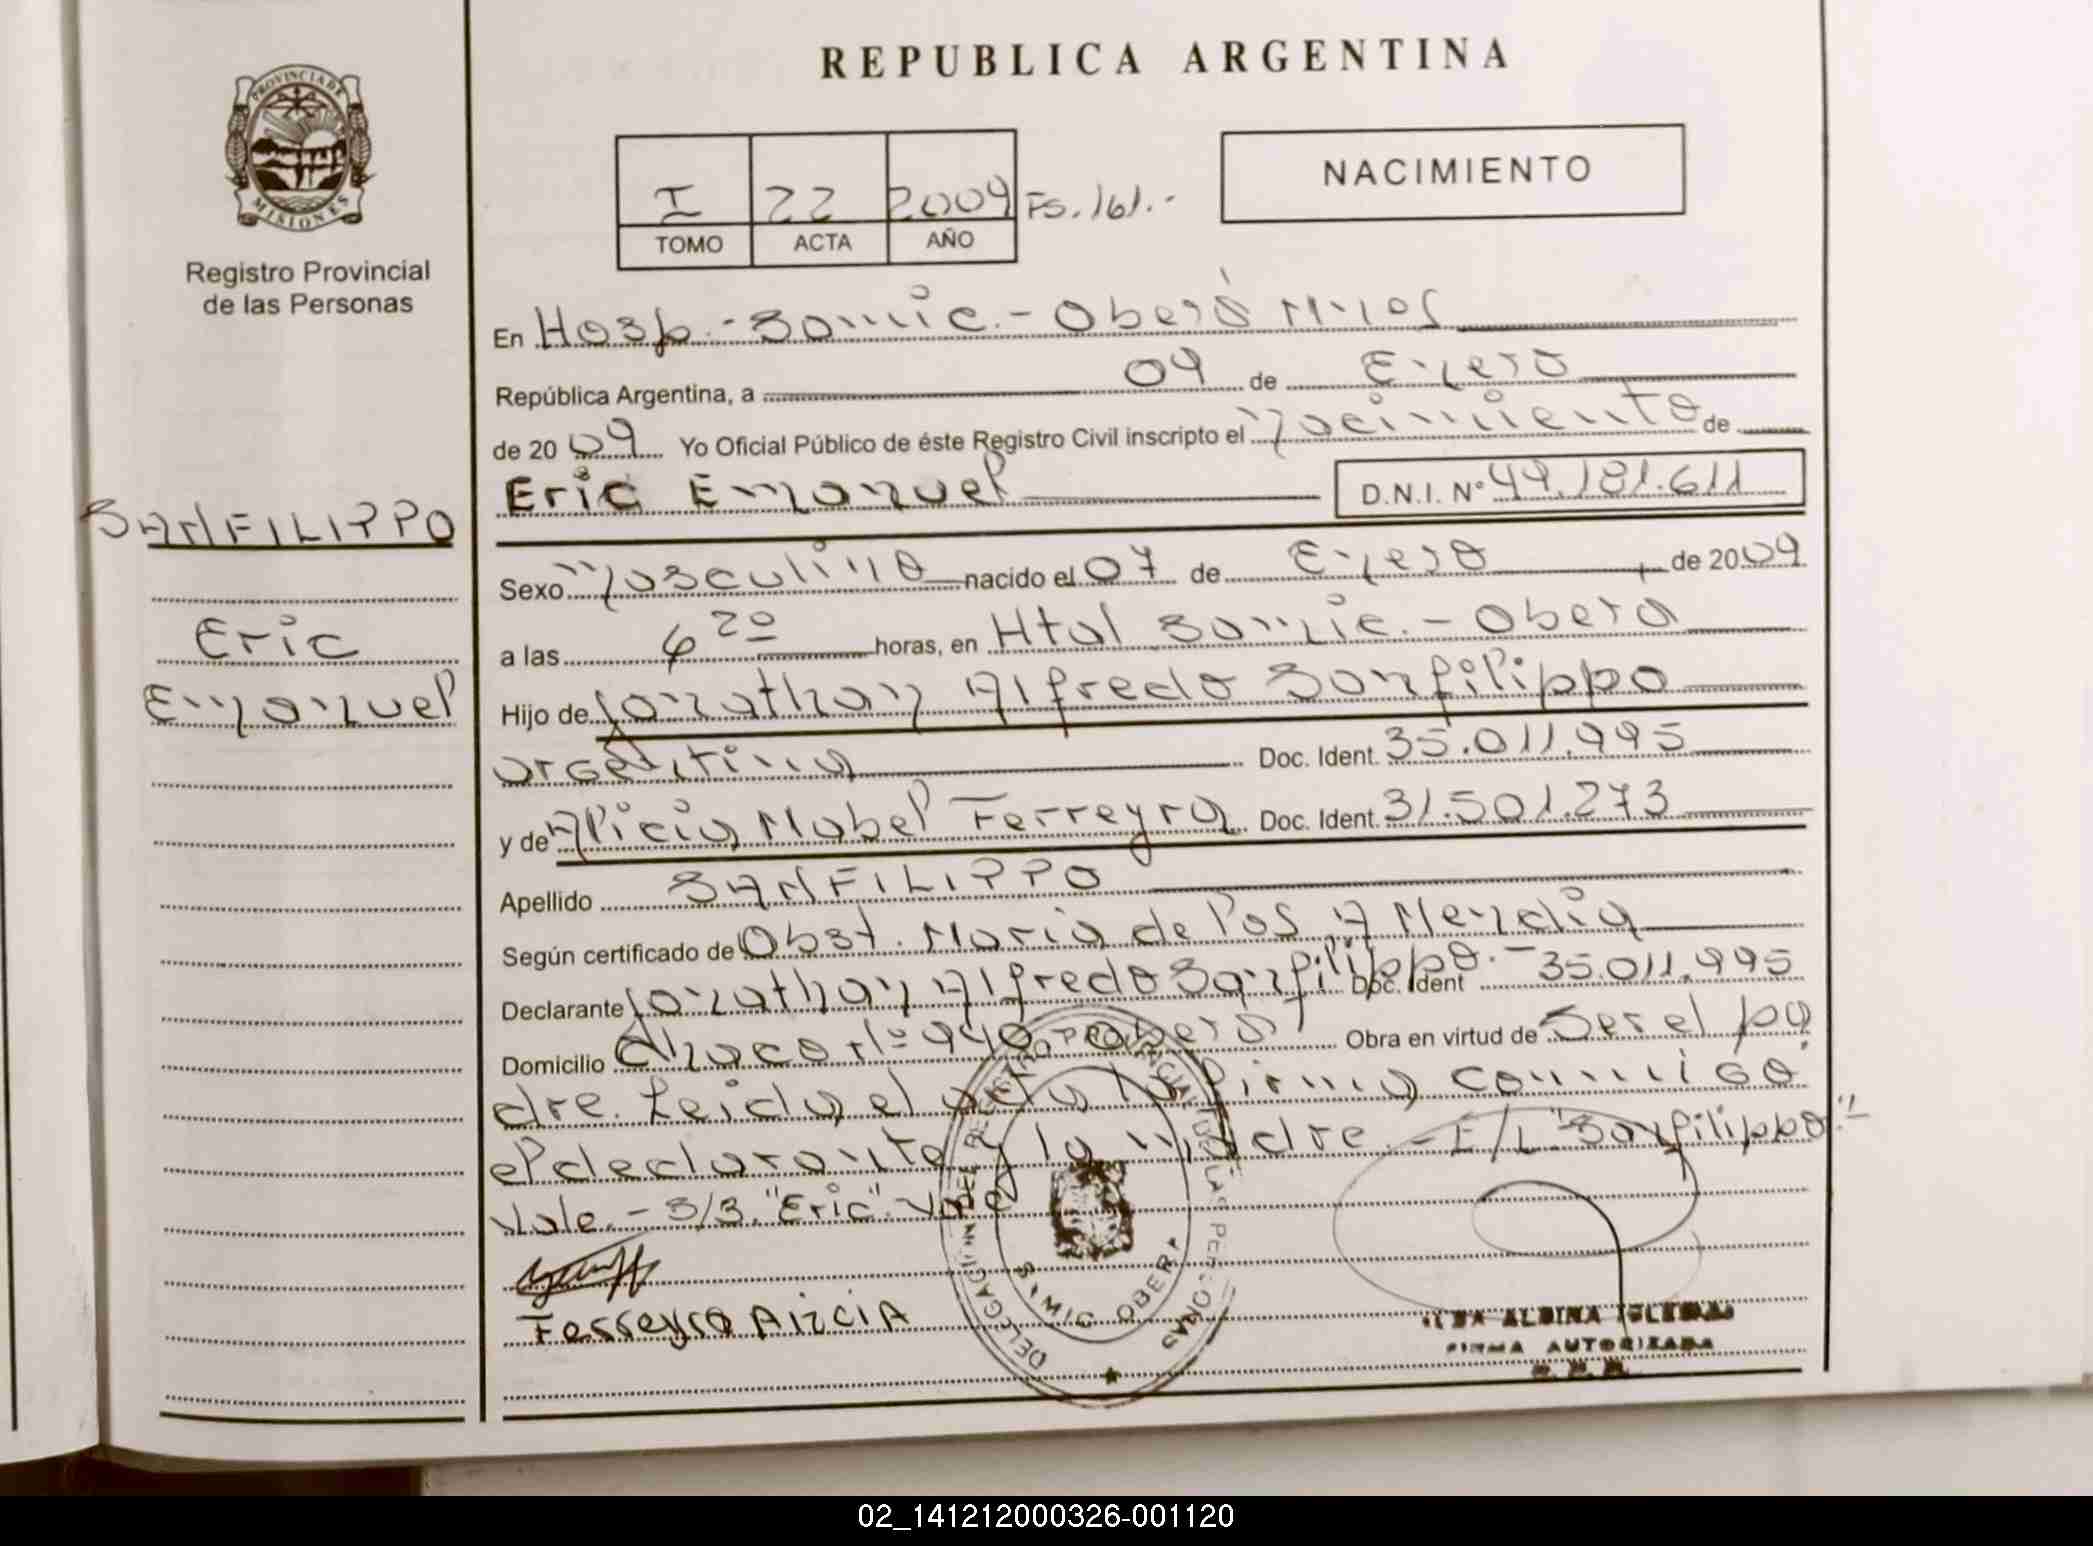 REPUBLICA ARGENTINA
PROVINCIA DE
MISIONES
Registro Provincial
de las Personas
I 22 2009 Fs. 161.-
TOMO ACTA AÑO
NACIMIENTO
En Hosp.-Samic.- Oberá Mnes
República Argentina, a 09 de Enero
de 2009 Yo Oficial Público de éste Registro Civil inscripto el Nacimiento de
Eric Emanuel D.N.I. Nº 49.181.611
SANFILIPPO
Eric
Emanuel
Sexo Masculino nacido el 07 de Enero de 2009
a las 6 20 horas, en Htal Samic.- Obera
Hijo de Jonathan Alfredo Sanfilippo
argentina Doc. Ident. 35.011.995
y de Alicia Mabel Ferreyra Doc. Ident. 31.501.273
Apellido SANFILIPPO
Según certificado de Obst. Maria de los A Mendia
Declarante Jonathan Alfredo Sanfilippo.- Doc. Ident 35.011.995
Domicilio Chaco Nº 940 Obera Obra en virtud de Ser el pa
dre. Leida el acta la firma conmigo
el declarante y la madre.- E/L "Sanfilippo"
Vale.- S/S. "Eric". Vale
Ferreyra AliciA
DELEGACION DEL REGISTRO PROVINCIAL DE LAS PERSONAS
OBERA
ALBINA
FIRMA AUTORIZADA
02_141212000326-001120